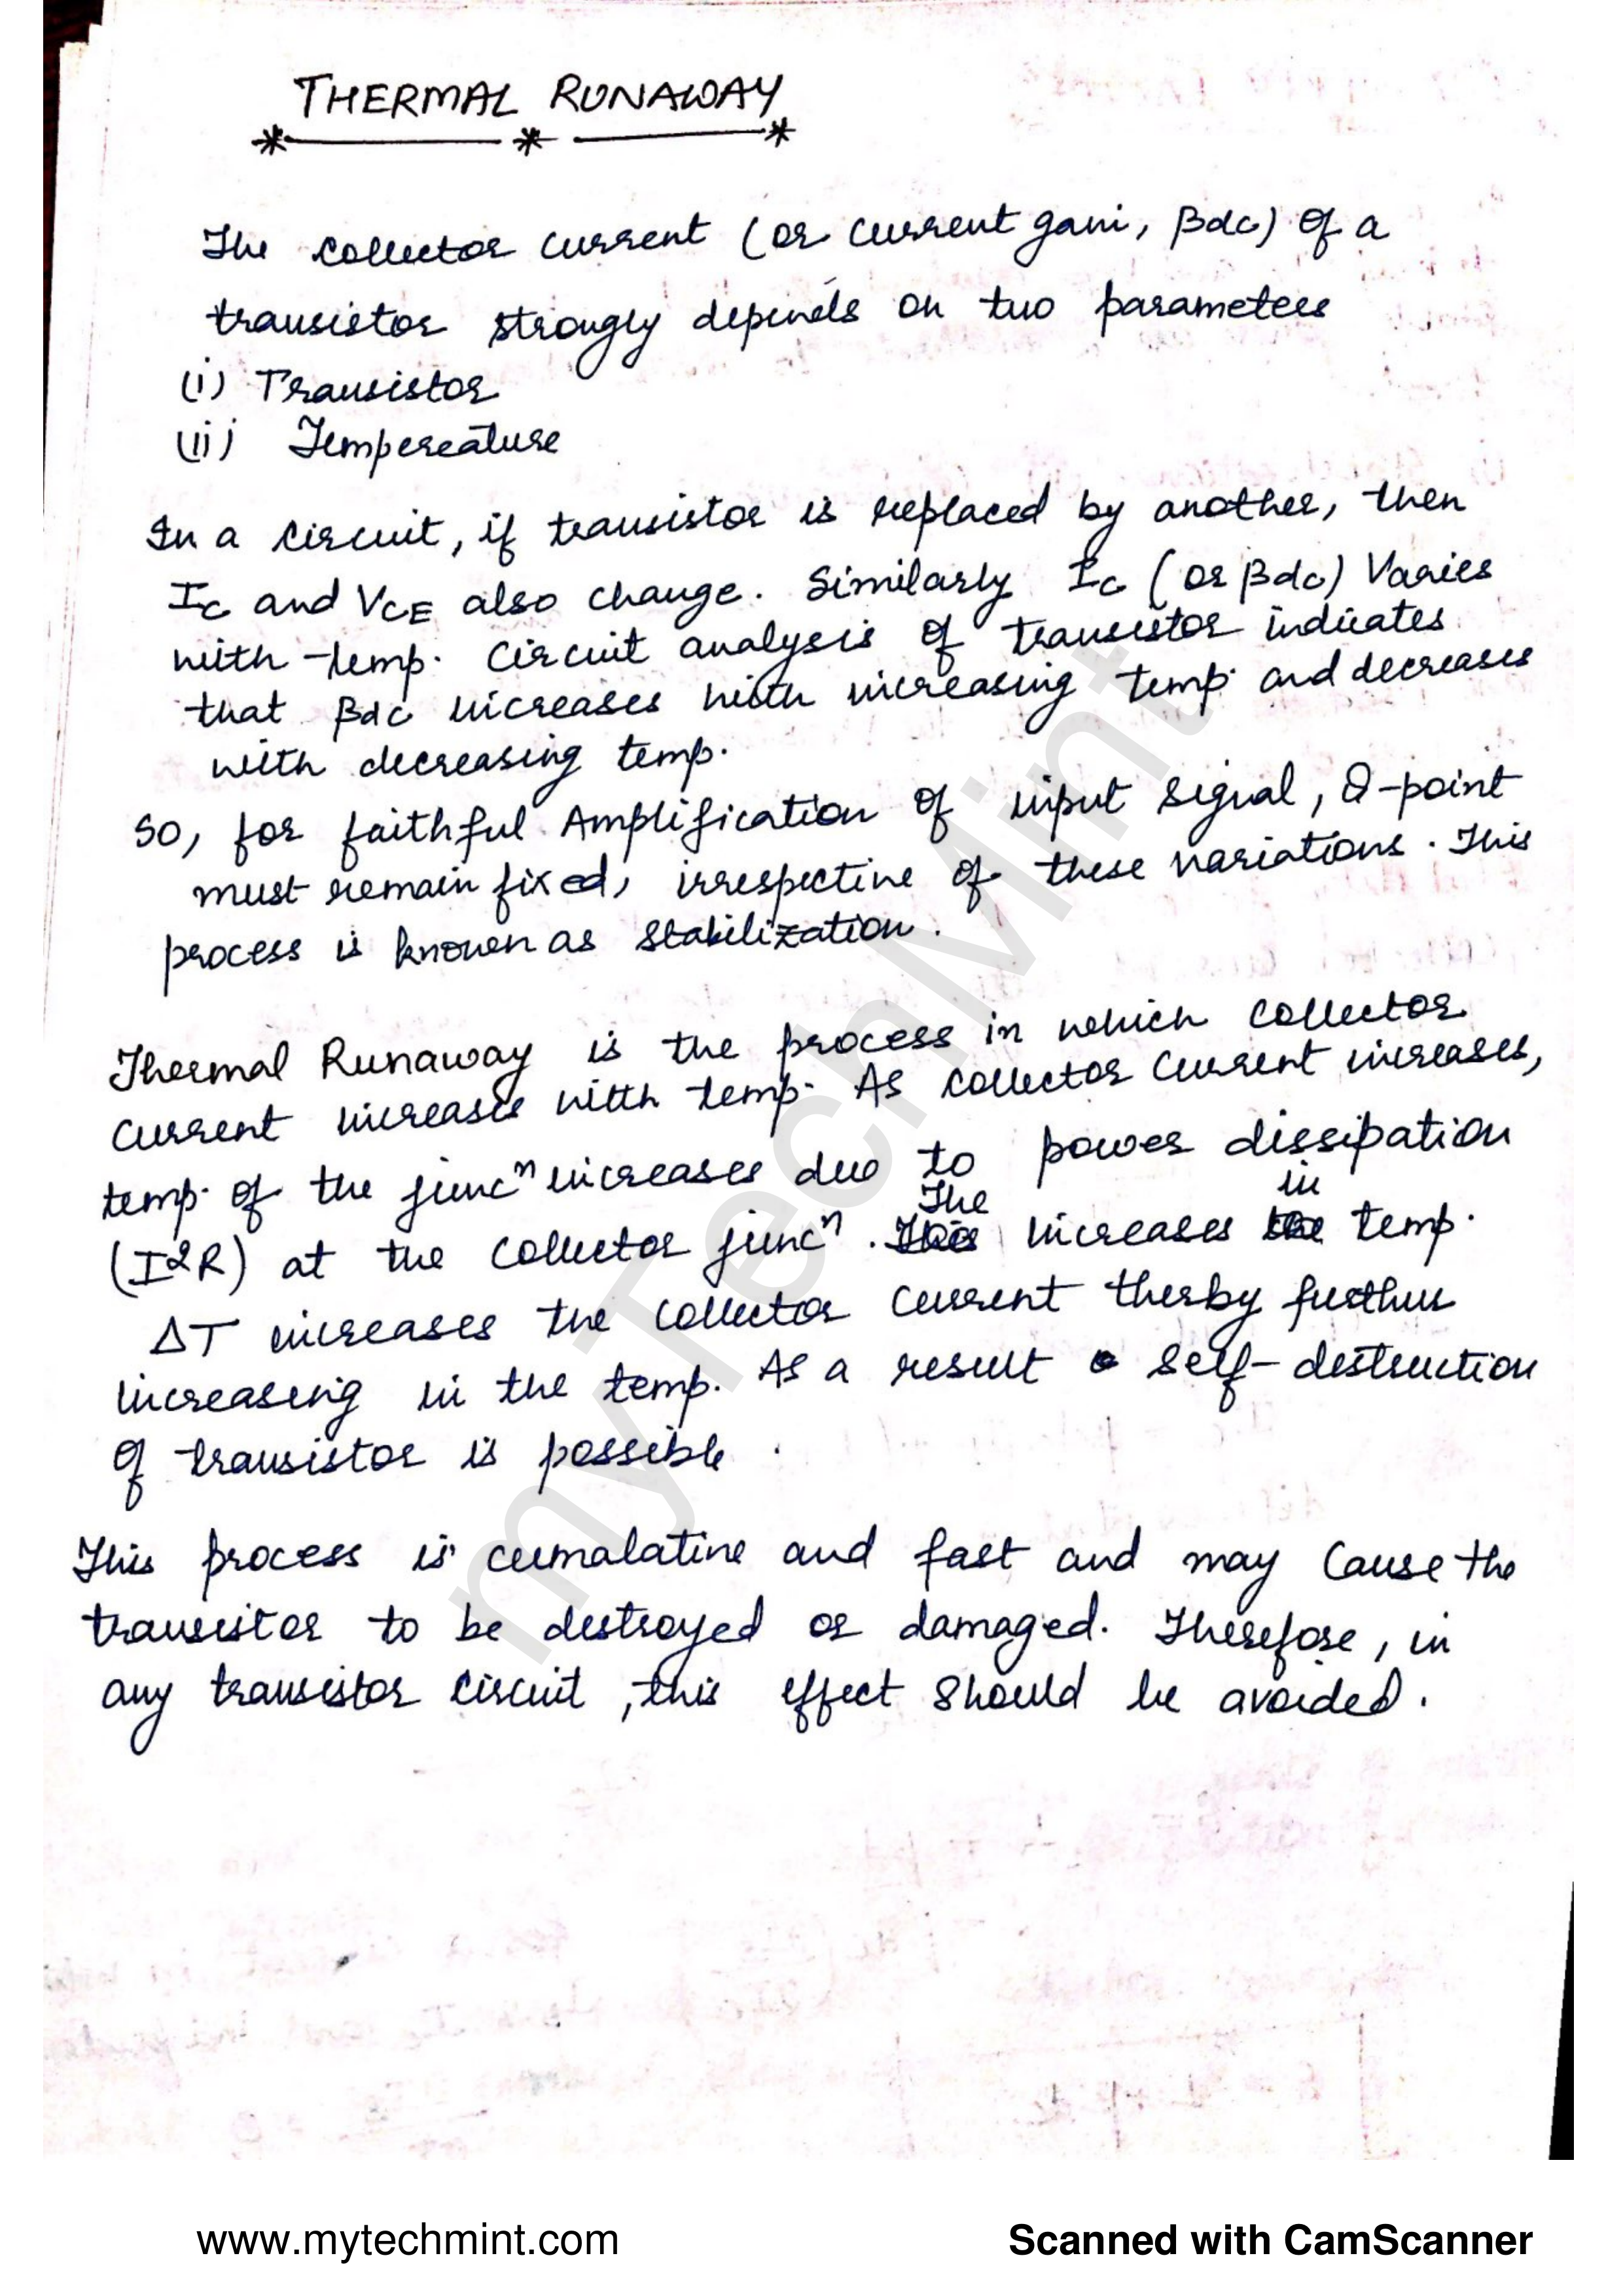 THERMAL RUNAWAY
The collector current (or current gain, βdc) of a
transistor strongly depends on two parameters
(i) Transistor
(ii) Tempereature
In a circuit, if transistor is replaced by another, then
IC and VCE also change. Similarly IC (or βdc) Varies
with temp. Circuit analysis of transistor indicates
that βdc increases with increasing temp. and decreases
with decreasing temp.
So, for faithful Amplification of input signal, Q-point
must remain fixed, irrespective of these variations. This
process is known as Stabilization.
Thermal Runaway is the process in which collector
current increases with temp. As collector current increases,
temp. of the juncⁿ increases due to power dissipation
(I²R) at the collector juncⁿ. The increases in temp.
ΔT increases the collector current therby further
increasing in the temp. As a result self-destruction
of transistor is possible.
This process is cumalative and fast and may cause the
transistor to be destroyed or damaged. Therefore, in
any transistor circuit, this effect should be avoided.
myTechMint
www.mytechmint.com
Scanned with CamScanner